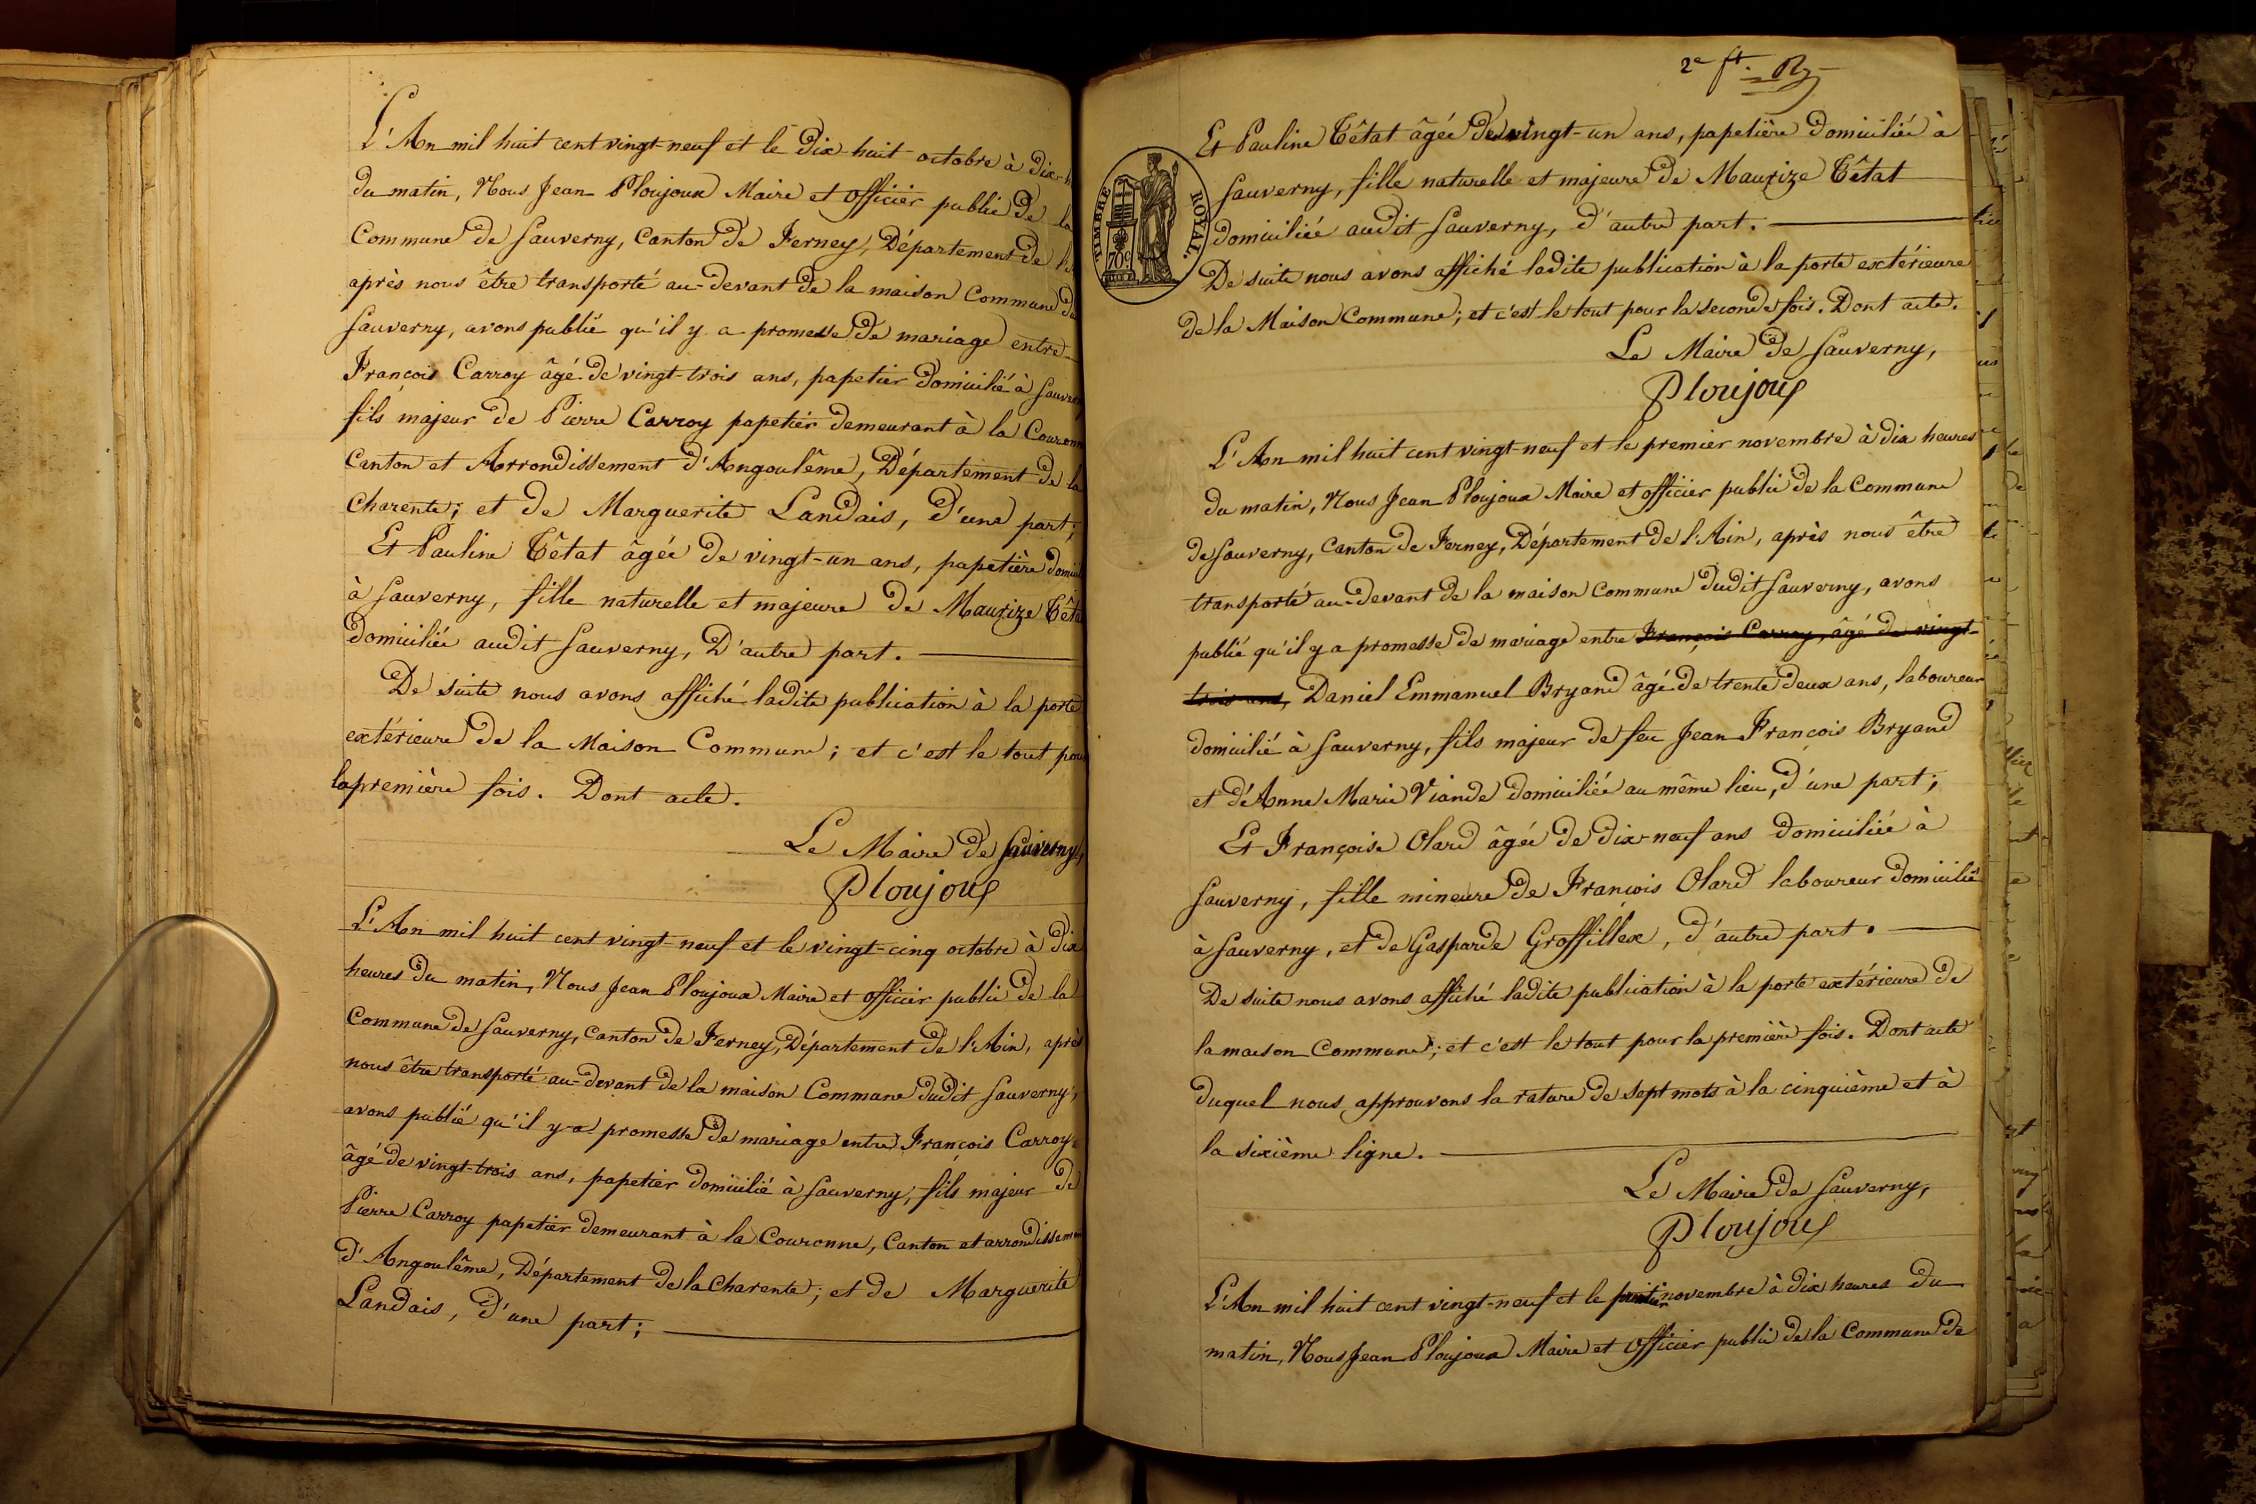 L'An mil huit cent vingt-neuf et le dix huit octobre à dix
du matin, Nous Jean Ploujoux Maire et officier public de la
Commune de Sauverny, Canton de Ferney, Département de l'
après nous être transporté au-devant de la maison Commune de
Sauverny, avons publié qu'il y a promesse de mariage entre
François Carroy âgé de vingt-trois ans, papetier domicilié à Sauver
fils majeur de Pierre Carroy papetier demeurant à la Couronn
Canton et Arrondissement d'Angoulême, Département de la
Charente; et de Marguerite Landais, d'une part;
Et Pauline Têtat âgée de vingt-un ans, papetière domici
à Sauverny, fille naturelle et majeure de Maurize Têta
domiciliée audit Sauverny, D'autre part.
De suite nous avons affiché ladite publication à la porte
extérieure de la Maison Commune; et c'est le tout pour
la première fois. Dont acte.
Le Maire de Sauverny,
Ploujoux
L'An mil huit cent vingt-neuf et le vingt-cinq octobre à dix
heures du matin, Nous Jean Ploujoux Maire et officier public de la
Commune de Sauverny, Canton de Ferney, Département de l'Ain, après
nous être transporté au-devant de la maison Commune dudit Sauverny,
avons publié qu'il y a promesse de mariage entre François Carroy
âgé de vingt-trois ans, papetier domicilié à Sauverny, fils majeur de
Pierre Carroy papetier demeurant à la Couronne, Canton et arrondissemen
d'Angoulême, Département de la Charente; et de Marguerite
Landais, d'une part;
2e ft.
TIMBRE ROYAL.
70c
Et Pauline Têtat âgée de vingt-un ans, papetière domiciliée à
Sauverny, fille naturelle et majeure de Maurize Têtat
domiciliée audit Sauverny, d'autre part.
De suite nous avons affiché ladite publication à la porte extérieure
de la Maison Commune; et c'est le tout pour la seconde fois. Dont acte.
Le Maire de Sauverny,
Ploujoux
L'An mil huit cent vingt-neuf et le premier novembre à dix heures
du matin, Nous Jean Ploujoux Maire et officier public de la Commune
de Sauverny, Canton de Ferney, Département de l'Ain, après nous être
transporté au-devant de la maison Commune dudit Sauverny, avons
publié qu'il y a promesse de mariage entre François Carroy, âgé de vingt-
trois ans, Daniel Emmanuel Bryand âgé de trente deux ans, laboureur
domicilié à Sauverny, fils majeur de feu Jean François Bryand
et d'Anne Marie Viande domiciliée au même lieu, d'une part;
Et Françoise Olard âgée de dix-neuf ans domiciliée à
Sauverny, fille mineure de François Olard laboureur domicilié
à Sauverny, et de Gasparde Groffillex, d'autre part.
De suite nous avons affiché ladite publication à la porte extérieure de
la maison Commune; et c'est le tout pour la première fois. Dont acte
duquel nous approuvons la rature de sept mots à la cinquième et à
la sixième ligne.
Le Maire de Sauverny,
Ploujoux
L'An mil huit cent vingt-neuf et le novembre à dix heures du
matin, Nous Jean Ploujoux Maire et officier public de la Commune de